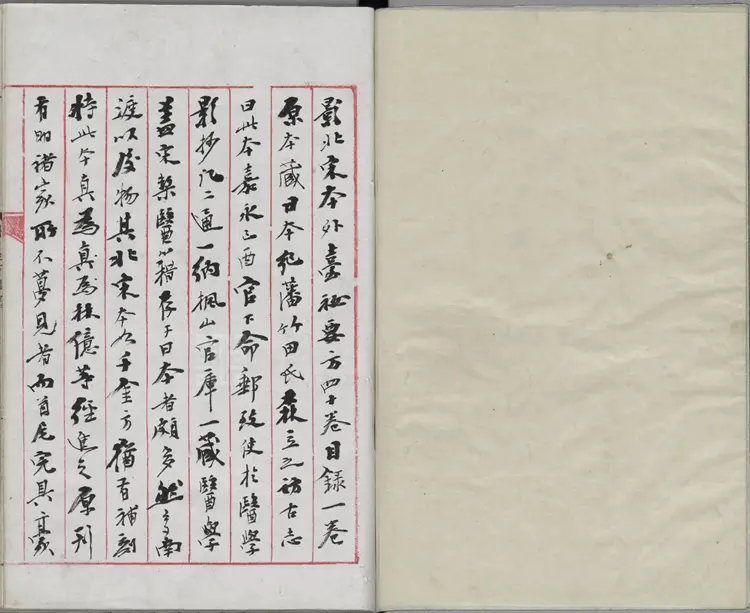 影北宋本外臺祕要方四十卷目録一卷
原本藏日本紀藩竹田氏森立之訪古志
曰此本嘉永己酉官下命郵致使於醫學
影抄凡二通一納楓山官庫一藏醫學
蓋宋槧醫籍存于日本者頗多然多南
渡以後物其北宋本千金方猶有補刻
特此本真為真為林億等經進之原刊
有明諸家所不夢見者而首尾完具豪